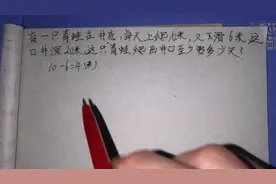 有一只青蛙在井底,每天上爬10米,又下滑6米,这
口井深20米,这只青蛙爬出井口至少要多少天?
10-6=4(米)